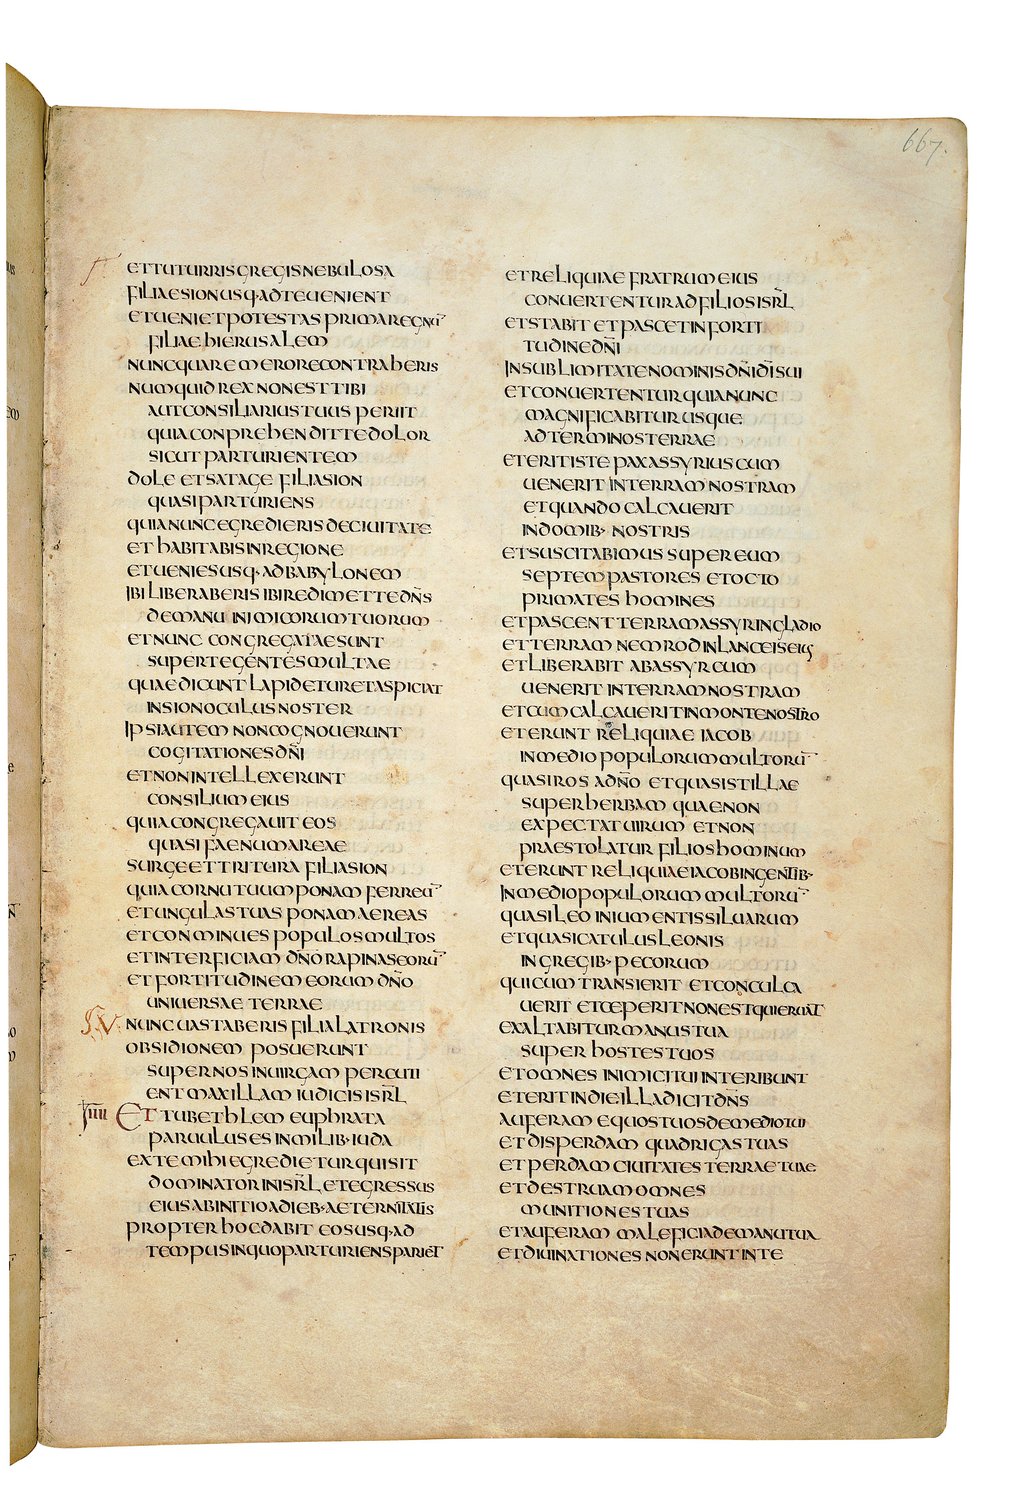 667.
ETTUTURRISGREGISNEBULOSA
FILIAESIONUSQ·ADTEUENIENT
ETUENIETPOTESTASPRIMAREGNŪ
FILIAEHIERUSALEM
NUNCQUAREMERORECONTRAHERIS
NUMQUIDREXNONESTTIBI
AUTCONSILIARIUSTUUSPERIIT
QUIACONPREHENDITTEDOLOR
SICUTPARTURIENTEM
DOLEETSATAGEFILIASION
QUASIPARTURIENS
QUIANUNCEGREDIERISDECIUITATE
ETHABITABISINREGIONE
ETUENIESUSQ·ADBABYLONEM
IBILIBERABERISIBIREDIMETTEDN̄S
DEMANUINIMICORUMTUORUM
ETNUNCCONGREGATAESUNT
SUPERTEGENTESMULTAE
QUAEDICUNTLAPIDETURETASPICIAT
INSIONOCULUSNOSTER
IPSIAUTEMNONCOGNOUERUNT
COGITATIONESDN̄I
ETNONINTELLEXERUNT
CONSILIUMEIUS
QUIACONGREGAUITEOS
QUASIFAENUMAREAE
SURGEETTRITURAFILIASION
QUIACORNUTUUMPONAMFERREŪ
ETUNGULASTUASPONAMAEREAS
ETCONMINUESPOPULOSMULTOS
ETINTERFICIAMDN̄ORAPINASEORŪ
ETFORTITUDINEMEORUMDN̄O
UNIUERSAETERRAE
NUNCUASTABERISFILIALATRONIS
OBSIDIONEMPOSUERUNT
SUPERNOSINUIRGAMPERCUTI
ENTMAXILLAMIUDICISISRL̄
IIII ETTUBETHLEMEUPHRATA
PARUULUSESINMILIB·IUDA
EXTEMIHIEGREDIETURQUISIT
DOMINATORINISRL̄ETEGRESSUS
EIUSABINITIOADIEB·AETERNITATIS
PROPTERHOCDABITEOSUSQ·AD
TEMPUSINQUOPARTURIENSPARIET
ETRELIQUIAEFRATRUMEIUS
CONUERTENTURADFILIOSISRL̄
ETSTABITETPASCETINFORTI
TUDINEDN̄I
INSUBLIMITATENOMINISDN̄IDĪSUI
ETCONUERTENTURQUIANUNC
MAGNIFICABITURUSQUE
ADTERMINOSTERRAE
ETERITISTEPAXASSYRIUSCUM
UENERITINTERRAMNOSTRAM
ETQUANDOCALCAUERIT
INDOMIB·NOSTRIS
ETSUSCITABIMUSSUPEREUM
SEPTEMPASTORESETOCTO
PRIMATESHOMINES
ETPASCENTTERRAMASSYRINGLADIO
ETTERRAMNEMRODINLANCEISEIUS
ETLIBERABITABASSYRCUM
UENERITINTERRAMNOSTRAM
ETCUMCALCAUERITINMONTENOSTRO
ETERUNTRELIQUIAEIACOB
INMEDIOPOPULORUMMULTORŪ
QUASIROSADN̄OETQUASISTILLAE
SUPERHERBAMQUAENON
EXPECTATUIRUMETNON
PRAESTOLATURFILIOSHOMINUM
ETERUNTRELIQUIAEIACOBINGENTIB·
INMEDIOPOPULORUMMULTORŪ
QUASILEOINIUMENTISSILUARUM
ETQUASICATULUSLEONIS
INGREGIB·PECORUM
QUICUMTRANSIERITETCONCULCA
UERITETCEPERITNONESTQUIERUAT
EXALTABITURMANUSTUA
SUPERHOSTESTUOS
ETOMNESINIMICITUIINTERIBUNT
ETERITINDIEILLADICITDN̄S
AUFERAMEQUOSTUOSDEMEDIOTUI
ETDISPERDAMQUADRIGASTUAS
ETPERDAMCIUITATESTERRAETUAE
ETDESTRUAMOMNES
MUNITIONESTUAS
ETAUFERAMMALEFICIADEMANUTUA
ETDIUINATIONESNONERUNTINTE